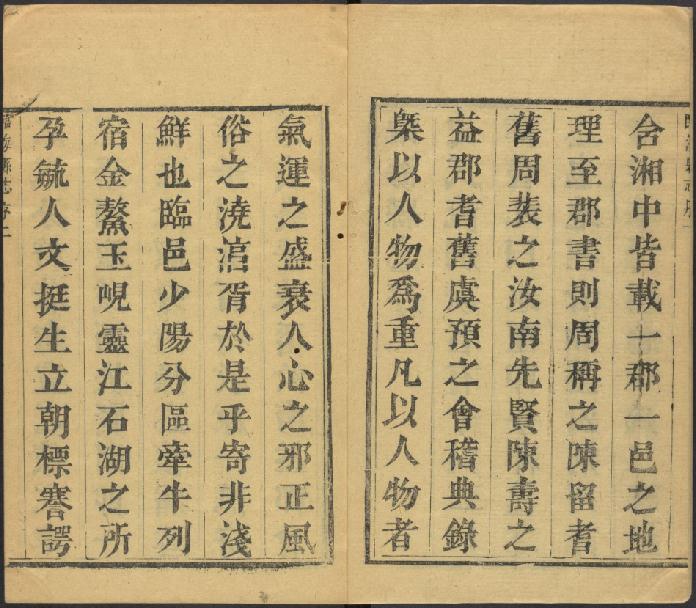 含湘中皆載一郡一邑之地
理至郡書則周稱之陳留耆
舊周裴之汝南先賢陳壽之
益郡耆舊虞預之會稽典錄
槩以人物爲重凡以人物者
氣運之盛衰人心之邪正風
俗之澆漓胥於是乎寄非淺
鮮也臨邑少陽分區牽牛列
宿金鰲玉峴靈江石湖之所
孕毓人文挺生立朝標謇諤
臨海縣志序二